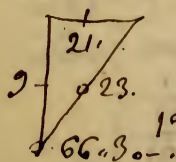 21.
9 23.
1°
66„30–.